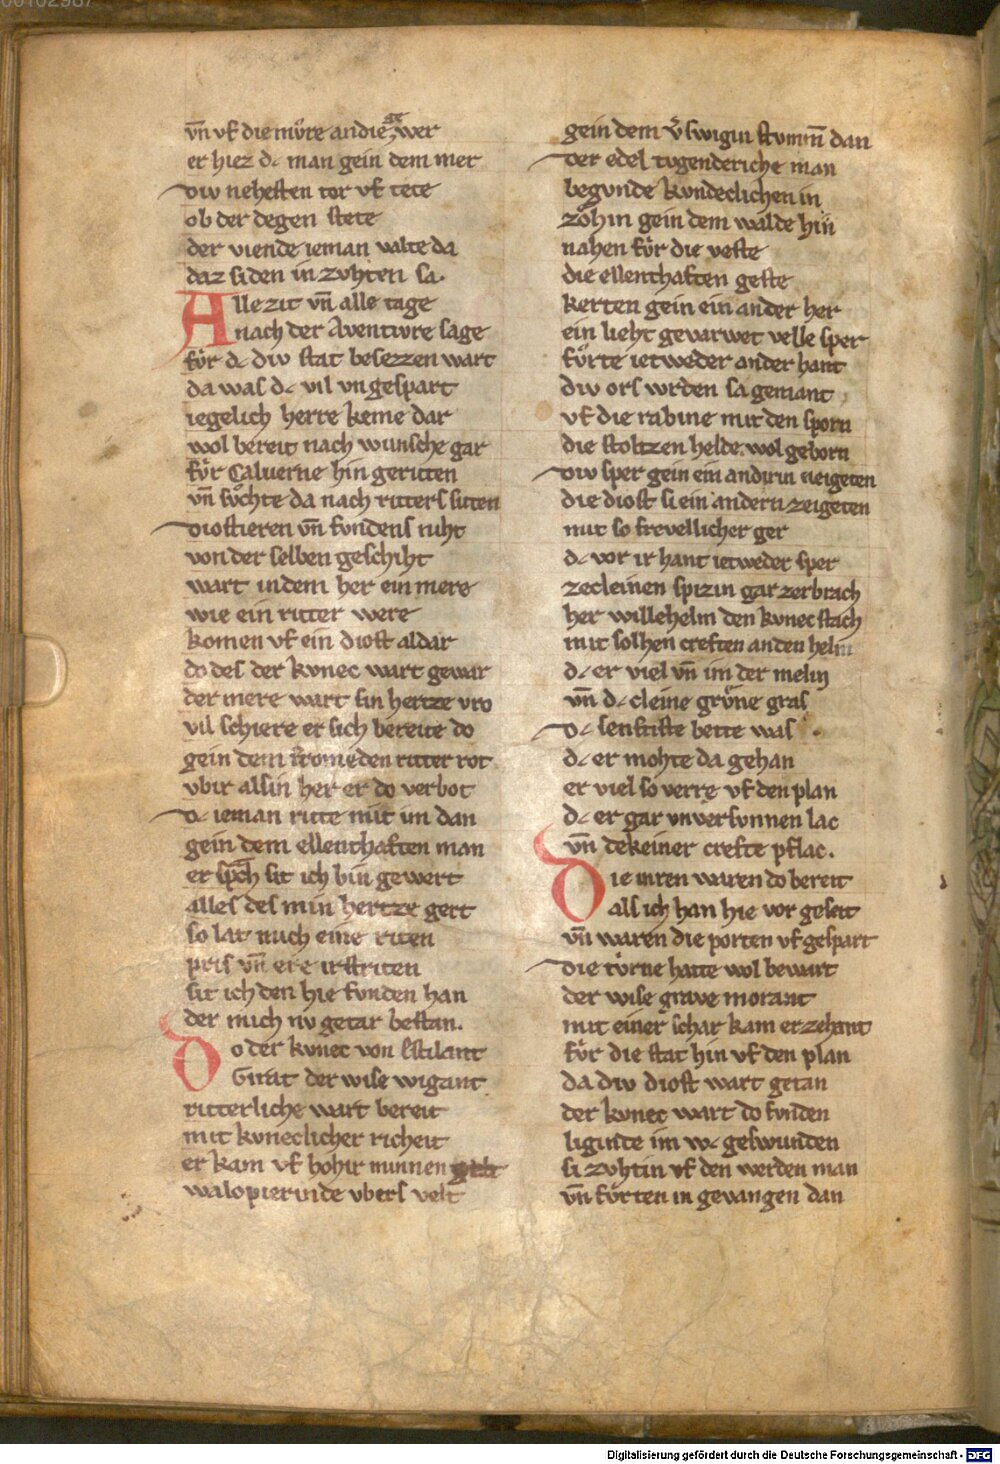 vn̄ vf die mv̊re an die gewer
er hiez dc man gein dem mer
div nehesten tor vf tete
ob der degen stete
der viende ieman valte da
daz si den in zvhten sa.
Alle zit vn̄ alle tage
nach der Aventivre sage
fv̊r dc div stat besezzen wart
da was dc vil vngespart
iegelich herre keme dar
wol bereit nach wunsche gar
fv̊r Caluerne hin geritten
vn̄ sv̊chte da nach ritters siten
diostieren vn̄ fvndens niht
von der selben geschiht
wart in dem her ein mere
wie ein ritter were
komen vf ein diost aldar
do des der kvnec wart gewar
der mere wart sin hertze vro
vil schiere er sich bereite do
gein dem fromeden ritter rot
vbir al sin her er do verbot
dc ieman ritte mit im dan
gein dem ellenthaften man
er sp̄ch sit ich bin gewert
alles des min hertze gert
so lat mich eine riten
pris vn̄ ere irstriten
sit ich den hie fvnden han
der mich nv getar bestan.
Do der kvnec von Estilant
Girat der wise wigant
ritterliche wart bereit
mit kvneclicher richeit
er kam vf hohir minnen gelt
walopierinde vbers velt
gein dem v̓swigin stvmm̄ dan
der edel tvgenderiche man
begvnde kvndeclichen in
zôhin gein dem walde hin
nahen fv̊r die veste
die ellenthaften geste
kerten gein ein ander her
ein lieht gevarwet velle sper
fv̊rte ietweder ander hant
div ors wrden sa gemant
vf die rabine mit den sporn
die stoltzen helde wol geborn
div sper gein ein andirin neigeten
die diost si ein andern zeigeten
mit so frevellicher ger
dc vor ir hant ietweder sper
zecleinen spizin gar zerbrach
her willehelm den kvnec stach
mit solhen creften an den helm
dc er viel vn̄ im der melm
vn̄ dc cleine grv̊ne gras
dc senftiste bette was
dc er mohte da gehan
er viel so verre vf den plan
dc er gar vnversvnnen lac
vn̄ dekeiner crefte pflac.
Die inren waren do bereit
als ich han hie vor geseit
vn̄ waren die porten vf gespart
die tv̊rne hatte wol bewart
der wise grave morant
mit einer schar kam er zehant
fv̊r die stat hin vf den plan
da div diost wart getan
der kvnec wart do fvnden
liginde im wc geswunden
si zvhtin vf den werden man
vn̄ fv̊rten in gevangen dan
Digitalisierung gefördert durch die Deutsche Forschungsgemeinschaft - DFG